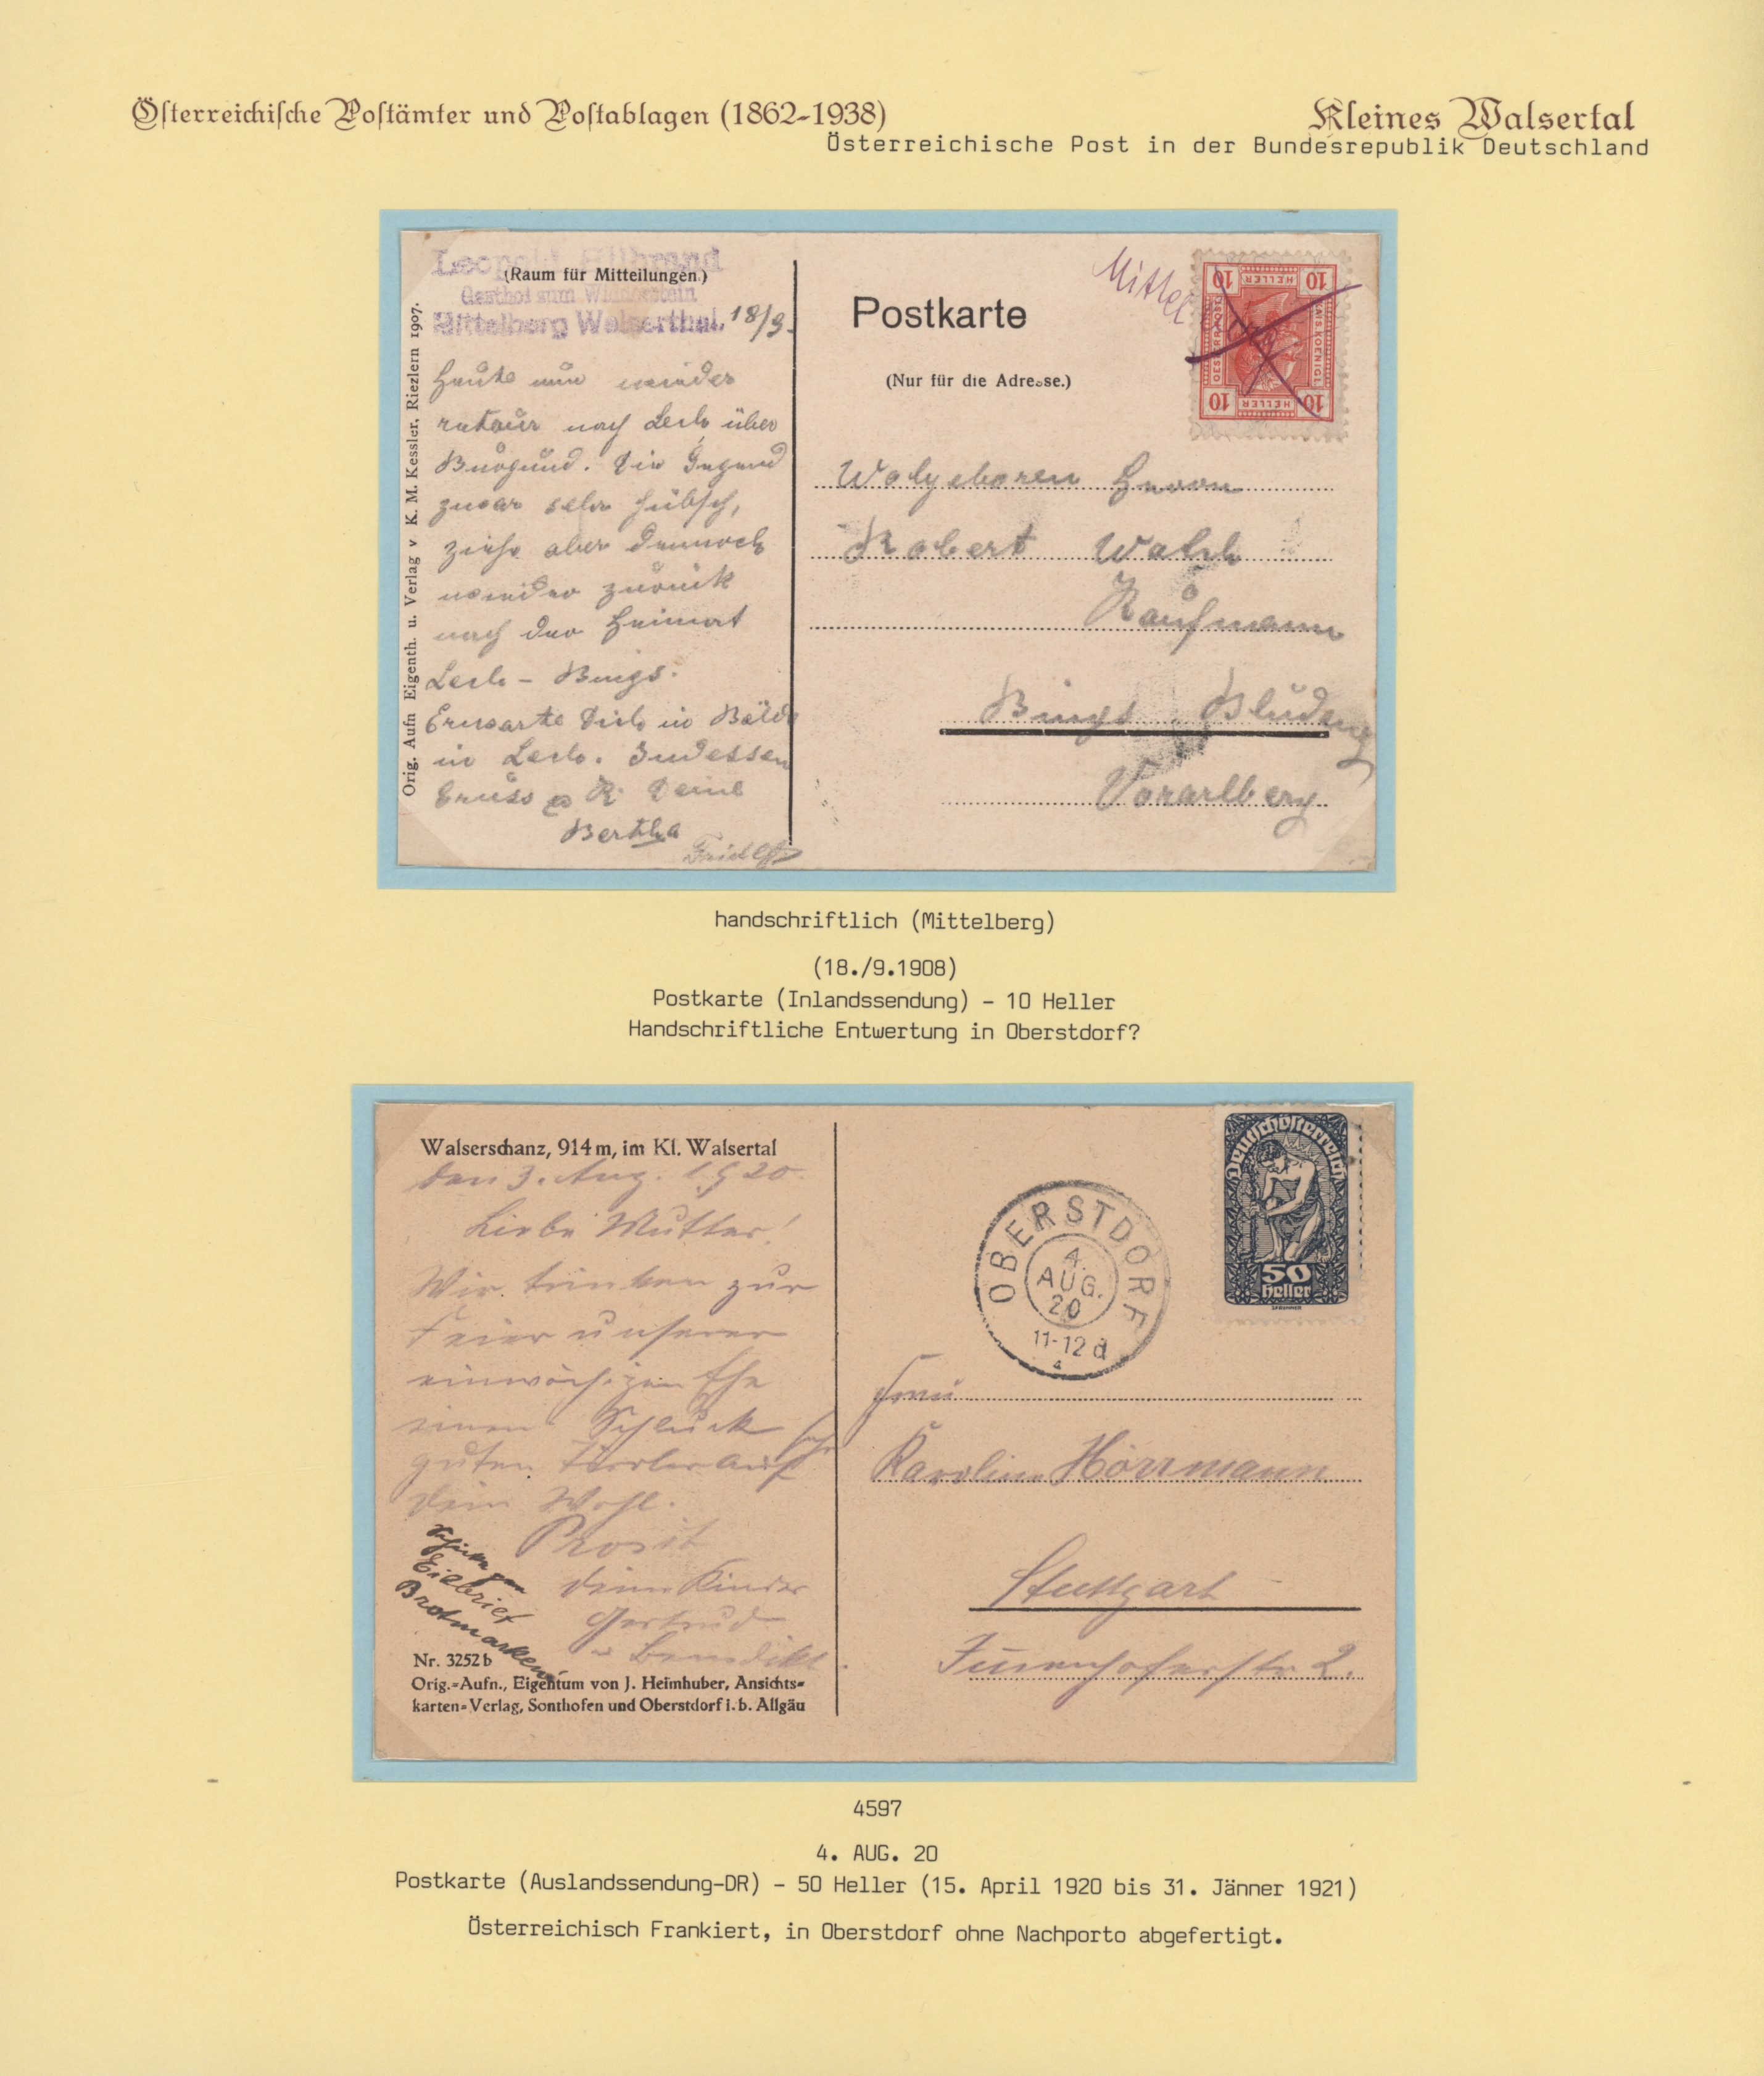 Österreichische Postämter und Postablagen (1862-1938)
Kleines Walsertal
Österreichische Post in der Bundesrepublik Deutschland
Gasthof zum Widderstein
Mittelberg Walserthal.
(Raum für Mitteilungen.)
18/9.
Orig. Aufn Eigenth. u. Verlag v K. M. Kessler, Riezlern 1907.
Heute nun wieder
retour nach Lech über
Die Gegend
zwar sehr hübsch,
ziehe aber dennoch
wieder zurück
nach der Heimat
Lech - Bings.
Erwarte Dich in Bälde
in Lech. Indessen
Gruss Deine
Bertha
Postkarte
(Nur für die Adresse.)
Mittelberg
10 HELLER 10
KAIS. KOENIGL.
OESTERR. POST
10 HELLER 10
Wolgeboren Herrn
Robert
Kaufmann
Bings Bludenz
Vorarlberg
handschriftlich (Mittelberg)
(18./9.1908)
Postkarte (Inlandssendung) - 10 Heller
Handschriftliche Entwertung in Oberstdorf?
Walserschanz, 914 m, im Kl. Walsertal
den 3. Aug. 1920.
Liebe Mutter!
Wir trinken zur
Feier unserer
einwöchigen Ehe
einen Schluck
guten Tiroler auf
Dein Wohl.
Prosit
Deine Kinder
Gertrud
u. Benedikt.
Eilbrief
Brotmarken
Nr. 3252 b
Orig.=Aufn., Eigentum von J. Heimhuber, Ansichts=
karten=Verlag, Sonthofen und Oberstdorf i. b. Allgäu
OBERSTDORF
4.
AUG.
20
11-12 d
Deutschösterreich
50
Heller
Frau
Karoline Hörrmann
Stuttgart
4597
4. AUG. 20
Postkarte (Auslandssendung-DR) - 50 Heller (15. April 1920 bis 31. Jänner 1921)
Österreichisch Frankiert, in Oberstdorf ohne Nachporto abgefertigt.